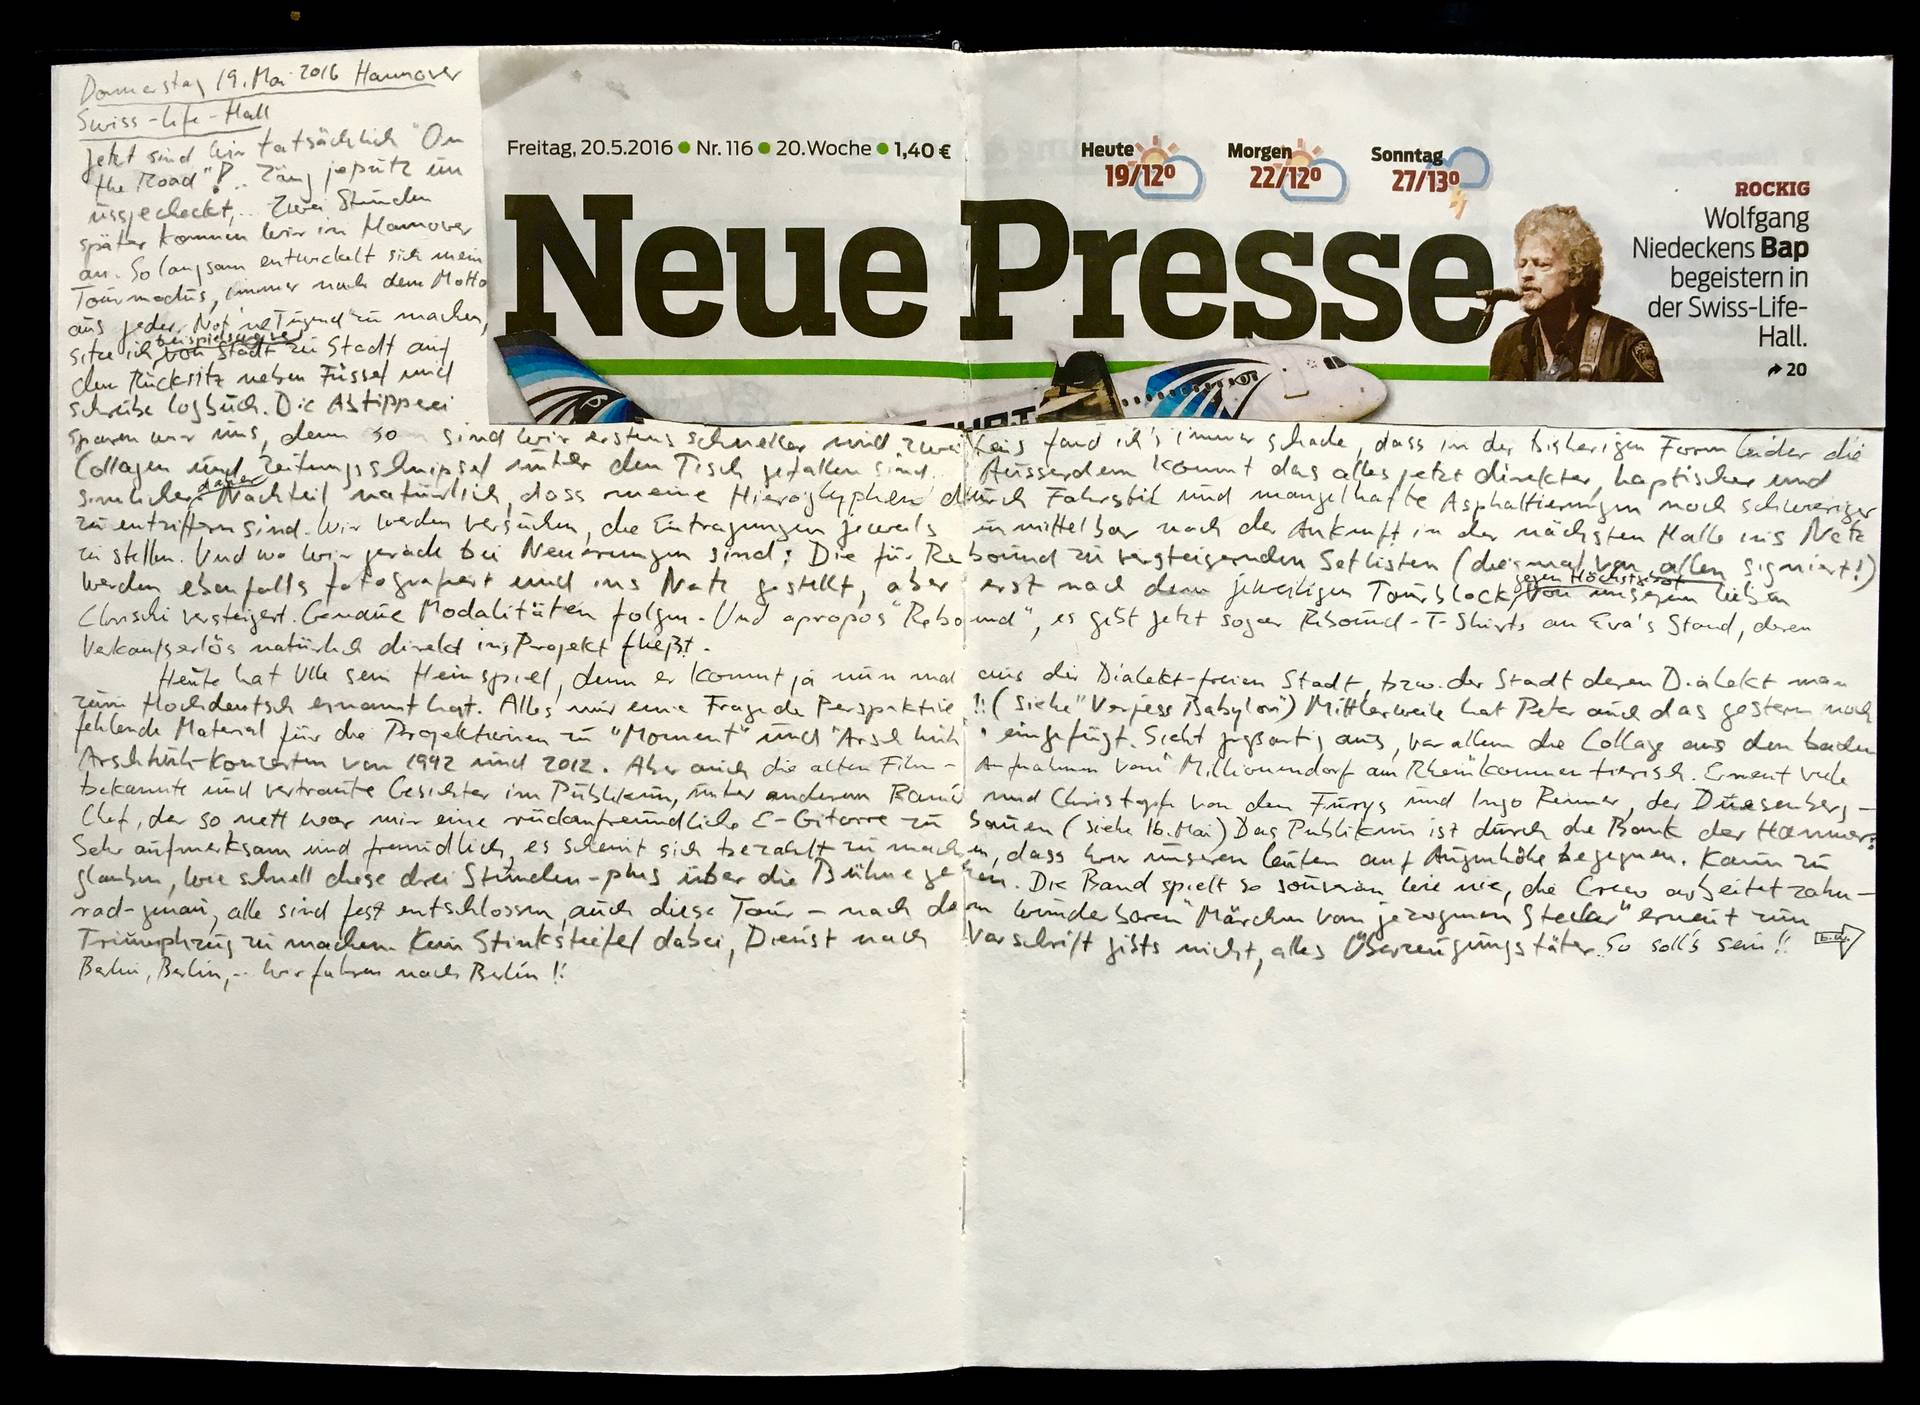 Donnerstag 19. Mai 2016 Hannover
Swiss-Life-Hall
Jetzt sind wir tatsächlich "On
the Road"! .. Zäng jeputz un
ussjecheckt, .. Zwei Stunden
später kommen wir in Hannover
an. So langsam entwickelt sich mein
Tourmodus, immer nach dem Motto
aus jeder Not 'ne Tugend zu machen,
sitze ich beispielsweise von Stadt zu Stadt auf
dem Rücksitz neben Füssel und
schreibe Logbuch. Die Abtipperei
Freitag, 20.5.2016 • Nr. 116 • 20. Woche • 1,40 €
Heute 19/12° Morgen 22/12° Sonntag 27/13°
Neue Presse
ROCKIG
Wolfgang
Niedeckens Bap
begeistern in
der Swiss-Life-
Hall.
20
sparen wir uns, denn so sind wir erstens schneller und zweitens fand ich's immer schade, dass in der bisherigen Form leider die
Collagen und Zeitungsschnipsel unter den Tisch gefallen sind. Ausserdem kommt das alles jetzt direkter, haptischer und
sinnlicher daher. Nachteil natürlich, dass meine Hieroglyphen durch Fahrstil und mangelhafte Asphaltierungen noch schwieriger
zu entziffern sind. Wir werden versuchen, die Eintragungen jeweils unmittelbar nach der Ankunft in der nächsten Halle ins Netz
zu stellen. Und wo wir gerade bei Neuerungen sind: Die für Rebound zu versteigernden Setlisten (diesmal von allen signiert!)
werden ebenfalls fotografiert und ins Netz gestellt, aber erst nach dem jeweiligen Tourblock gegen Höchstgebot von unserem lieben
Chrischi versteigert. Genaue Modalitäten folgen. Und apropos "Rebound", es gibt jetzt sogar Rebound-T-Shirts an Eva's Stand, deren
Verkaufserlös natürlich direkt ins Projekt fließt.
Heute hat Ulle sein Heimspiel, denn er kommt ja nun mal aus der Dialekt-freien Stadt, bzw. der Stadt deren Dialekt man
zum Hochdeutsch ernannt hat. Alles nur eine Frage der Perspektive!! (siehe "Verjess Babylon") Mittlerweile hat Peter auch das gestern noch
fehlende Material für die Projektionen zu "Moment" und "Arsch huh" eingefügt. Sieht großartig aus, vor allem die Collage aus den beiden
Arschhuh-Konzerten von 1992 und 2012. Aber auch die alten Film-Aufnahmen vom "Millionendorf am Rhein" kommen tierisch. Erneut viele
bekannte und vertraute Gesichter im Publikum, unter anderem Rainer und Christof von den Furys und Ingo Renner, der Duesenberg-
Chef, der so nett war mir eine rückenfreundliche E-Gitarre zu bauen (siehe 16. Mai) Das Publikum ist durch die Bank der Hammer:
Sehr aufmerksam und freundlich, es scheint sich bezahlt zu machen, dass wir unseren Leuten auf Augenhöhe begegnen. Kaum zu
glauben, wie schnell diese drei Stunden-plus über die Bühne gehen. Die Band spielt so souverän wie nie, die Crew arbeitet zahn-
rad-genau, alle sind fest entschlossen, auch diese Tour – nach dem wunderbaren "Märchen vom gezogenen Stecker" erneut zum
Triumphzug zu machen. Kein Stinkstiefel dabei, Dienst nach Vorschrift gibts nicht, alles Überzeugungstäter. So soll's sein!!
Berlin, Berlin, .. wir fahren nach Berlin!!